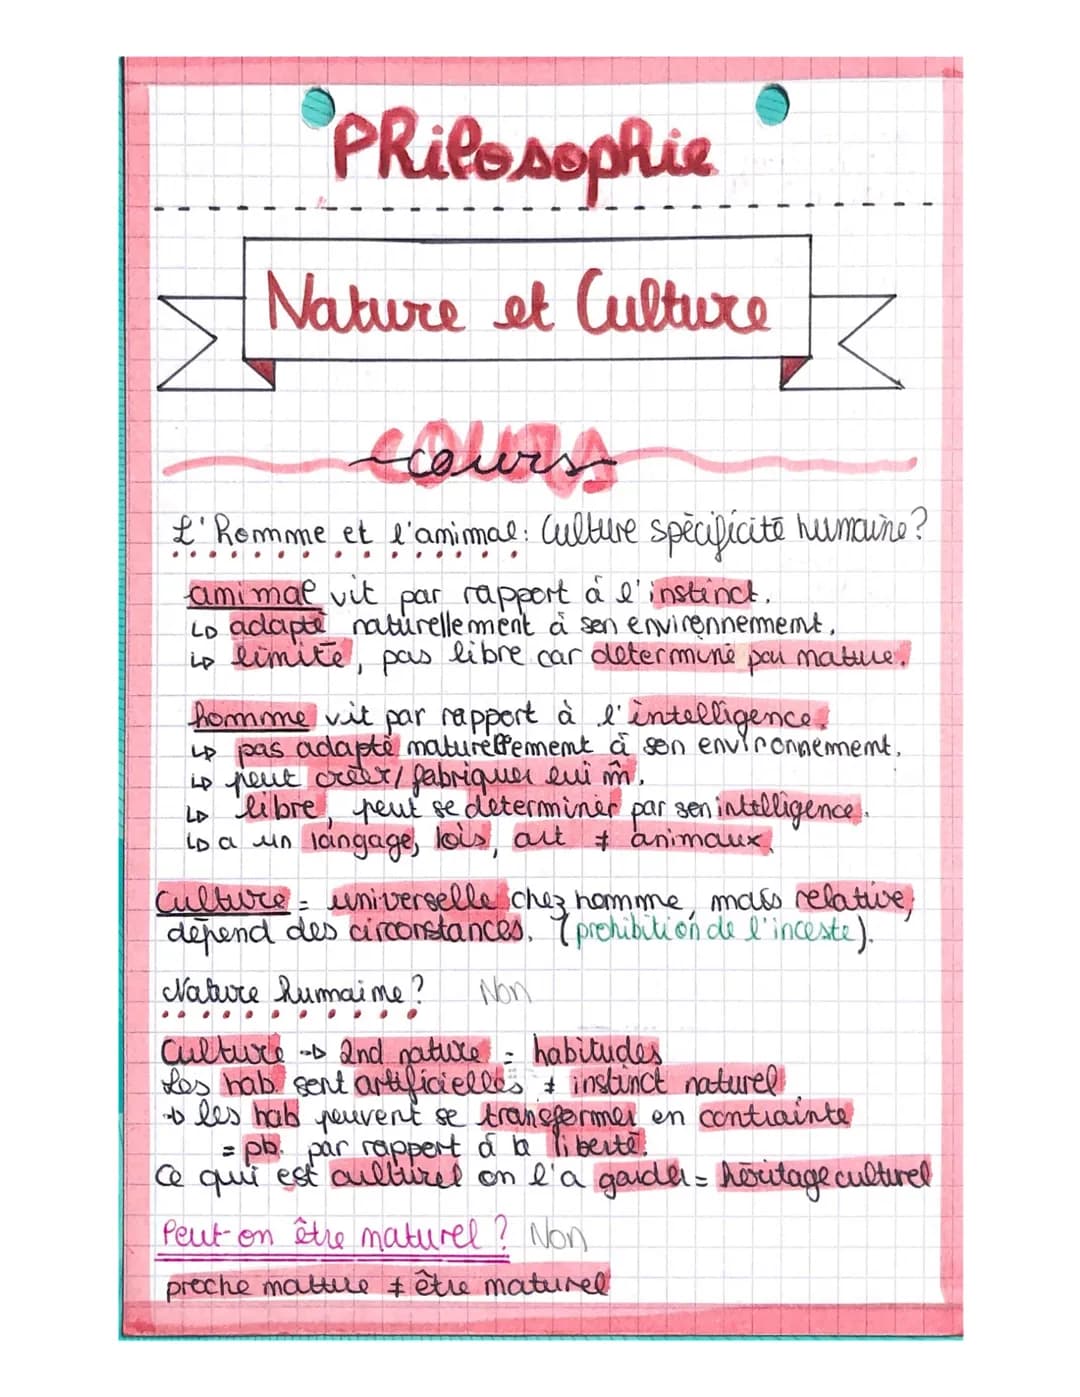 Philosophie
Nature et Culture
cours
L'homme et l'animal : Culture spécificité humaine ?
animal vit par rapport à l'instinct.
↳ adapté naturellement à son environnement.
↳ limité, pas libre car déterminé par nature.
homme vit par rapport à l'intelligence.
↳ pas adapté naturellement à son environnement.
↳ peut créer / fabriquer lui m̂.
↳ libre, peut se déterminer par son intelligence.
↳ a un langage, lois, art ≠ animaux.
Culture = universelle chez homme, mais relative,
dépend des circonstances. (prohibition de l'inceste).
Nature humaine ? Non
Culture → 2nd nature = habitudes
Les hab. sont artificielles ≠ instinct naturel
→ les hab peuvent se transformer en contrainte
= pb. par rapport à la liberté.
Ce qui est culturel on l'a garder = héritage culturel
Peut-on être naturel ? Non
proche nature ≠ être naturel